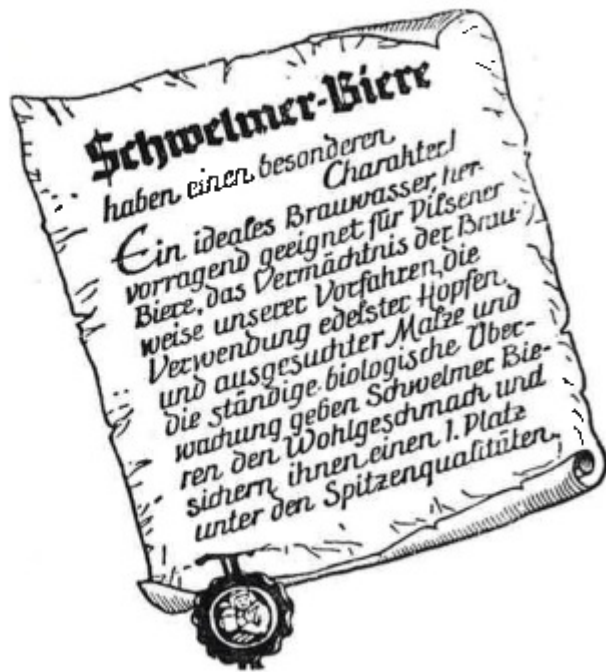 Schwelmer-Biere
haben einen besonderen
Charakter!
Ein ideales Brauwasser, her-
vorragend geeignet für Pilsener
Biere, das Vermächtnis der Brau-
weise unserer Vorfahren, die
Verwendung edelster Hopfen
und ausgesuchter Malze und
die ständige biologische Über-
wachung geben Schwelmer Bie-
ren den Wohlgeschmack und
sichern ihnen einen 1. Platz
unter den Spitzenqualitäten.